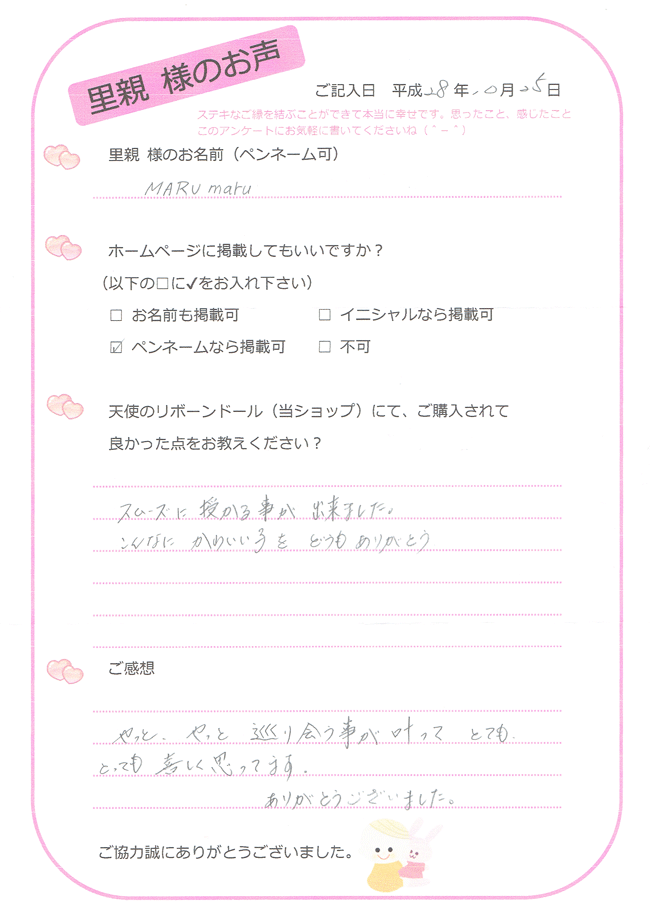 里親 様のお声
ご記入日 平成28年10月25日
ステキなご縁を結ぶことができて本当に幸せです。思ったこと、感じたこと
このアンケートにお気軽に書いてくださいね（＾－＾）
里親 様のお名前（ペンネーム可）
MARU maru
ホームページに掲載してもいいですか？
（以下の□に✓をお入れ下さい）
□ お名前も掲載可 □ イニシャルなら掲載可
☑ ペンネームなら掲載可 □ 不可
天使のリボーンドール（当ショップ）にて、ご購入されて
良かった点をお教えください？
スムーズに 授かる事が 出来ました。
こんなに かわいい子を どうも ありがとう
ご感想
やっと、やっと 巡り会う事が 叶って とても
とっても 喜しく思ってます.
ありがとうございました。
ご協力誠にありがとうございました。